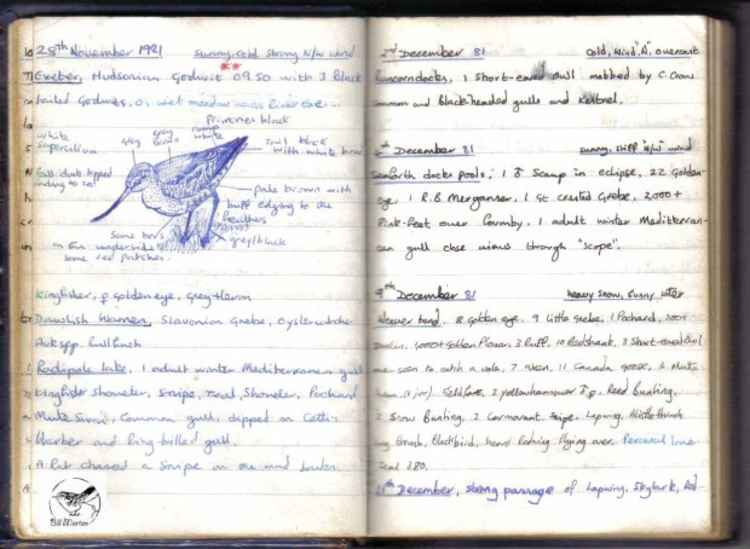 28th November 1981 Sunny, cold strong N/W wind
Exeter, Hudsonian Godwit 09.50 with 3 Black
tailed Godwits, on wet meadow near River Exe
Primaries black
white
supercilium
grey
grey
rump
white
tail black
with white
Bill dark tipped
pale brown with
buff edging to the
feathers
Some bars
on the underside
some red patches.
grey/black
Kingfisher, ♀ goldeneye, Grey Heron
Dawlish Warren, Slavonian Grebe, Oystercatcher
Auk spp, bullfinch
Radipole lake, 1 adult winter Mediterranean gull
Kingfisher Shoveler, Snipe, Teal, Shoveler, Pochard
Mute Swan, Common gull, dipped on Cetti's
Warbler and Ring-billed gull.
A Rat chased a Snipe in the
Bill Morton
2nd December 81 Cold, Wind "N" overcast
Runcorn docks, 1 Short-eared owl mobbed by C. Crow
Common and Blackheaded gulls and Kestrel.
December 81 sunny, stiff "N/W" wind
Seaforth docks pools, 1 ♂ Scaup in eclipse, 22 Golden-
eye, 1 R.B. Merganser, 1 Gt crested Grebe, 2,000+
Pink-feet over Formby, 1 adult winter Mediterran-
ean gull close views through "scope".
9th December 81 heavy snow, sunny later
Weaver bend, 8 golden eye, 9 little grebe, 1 Pochard,
Dunlin, 1,000+ Golden Plover, 3 Ruff, 10 Redshank, 3 Short-eared Owl
one seen to catch a vole, 7 11 Canada goose, 2 Mute
Fieldfare, 2 yellowhammer Reed Bunting,
2 Snow Bunting, 2 Cormorant, Snipe, Lapwing, Mistlethrush
Song thrush, Blackbird, heard flying over. Perceval lane
Teal 180.
December, strong passage of Lapwing, Skylark, Red-